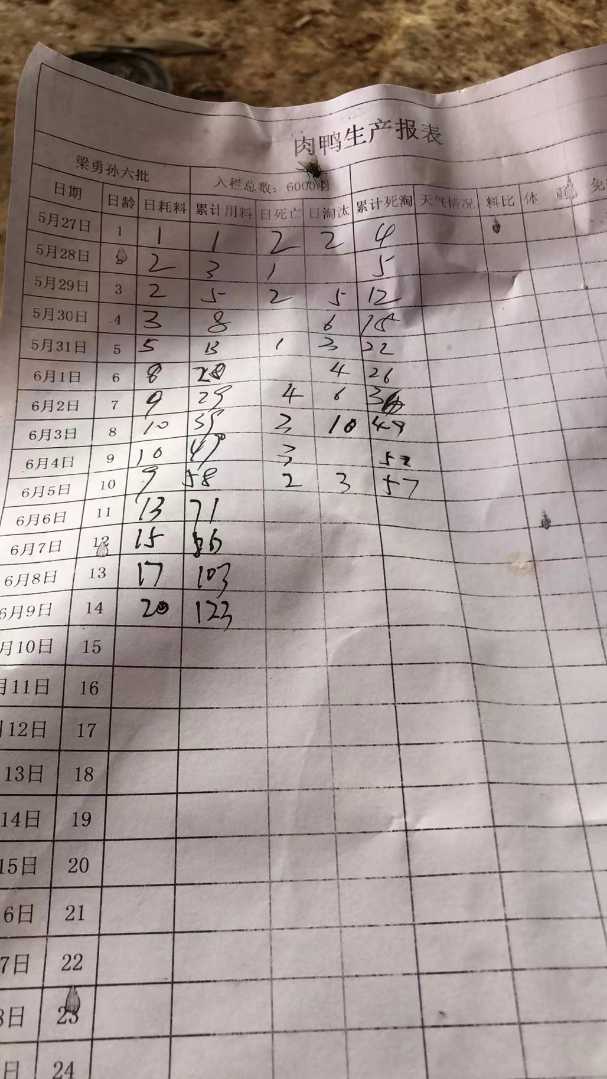 肉鸭生产报表
梁勇孙六批 入栏总数：6000
日期 日龄 日耗料 累计用料 日死亡 日淘汰 累计死淘 天气情况 料比 体 免
5月27日 1 1 1 2 2 4
5月28日 2 3 1 5
5月29日 3 2 5 2 5 12
5月30日 4 3 8 6 18
5月31日 5 5 13 1 3 22
6月1日 6 8 4 26
6月2日 7 9 29 4 6
6月3日 8 10 3 10 49
6月4日 9 10 49 3 52
6月5日 10 9 58 2 3 57
6月6日 11 13 71
6月7日 12 15 86
6月8日 13 17 103
6月9日 14 20 123
月10日 15
月11日 16
月12日 17
13日 18
14日 19
15日 20
6日 21
7日 22
8日 23
日 24